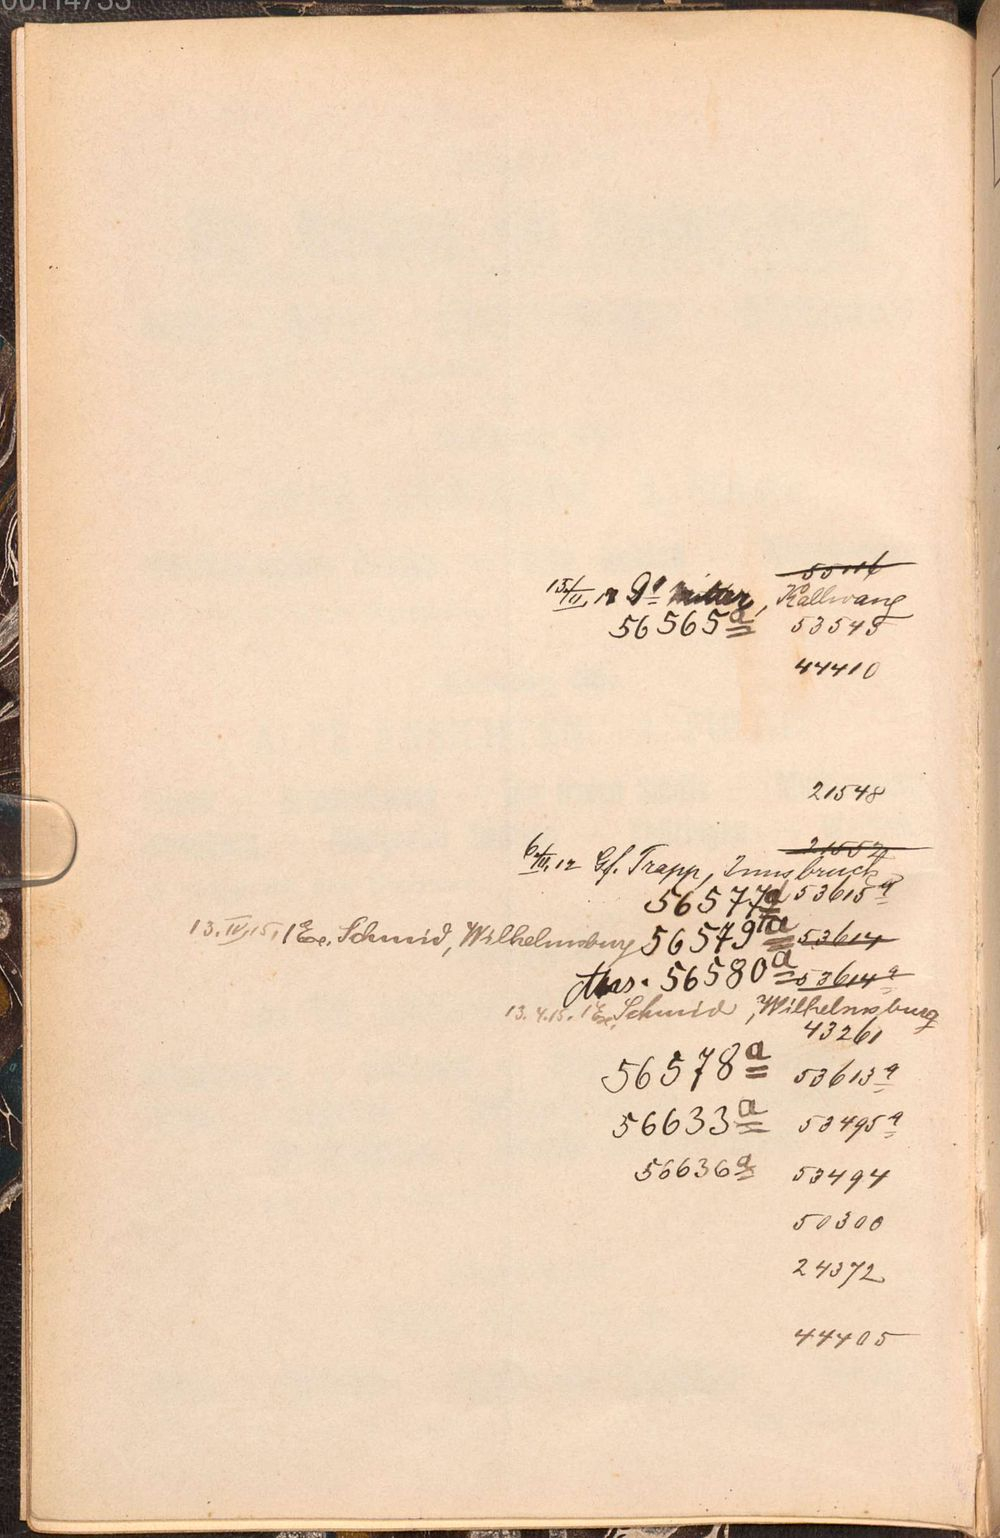 00114733
15/II, 12 Kallwang
56565a 53545
44410
21548
21552
6/III, 12 Gf. Trapp, Innsbruck
56577a 53615a
13. IV, 15, 1 Ex. Schmid, Wilhelmsburg 56579a 53614
56580a 53614a
13. 4. 15. 1 Ex. Schmid, Wilhelmsburg
43261
56578a 53613a
56633a 53495a
56636a 53494
50300
24372
44405